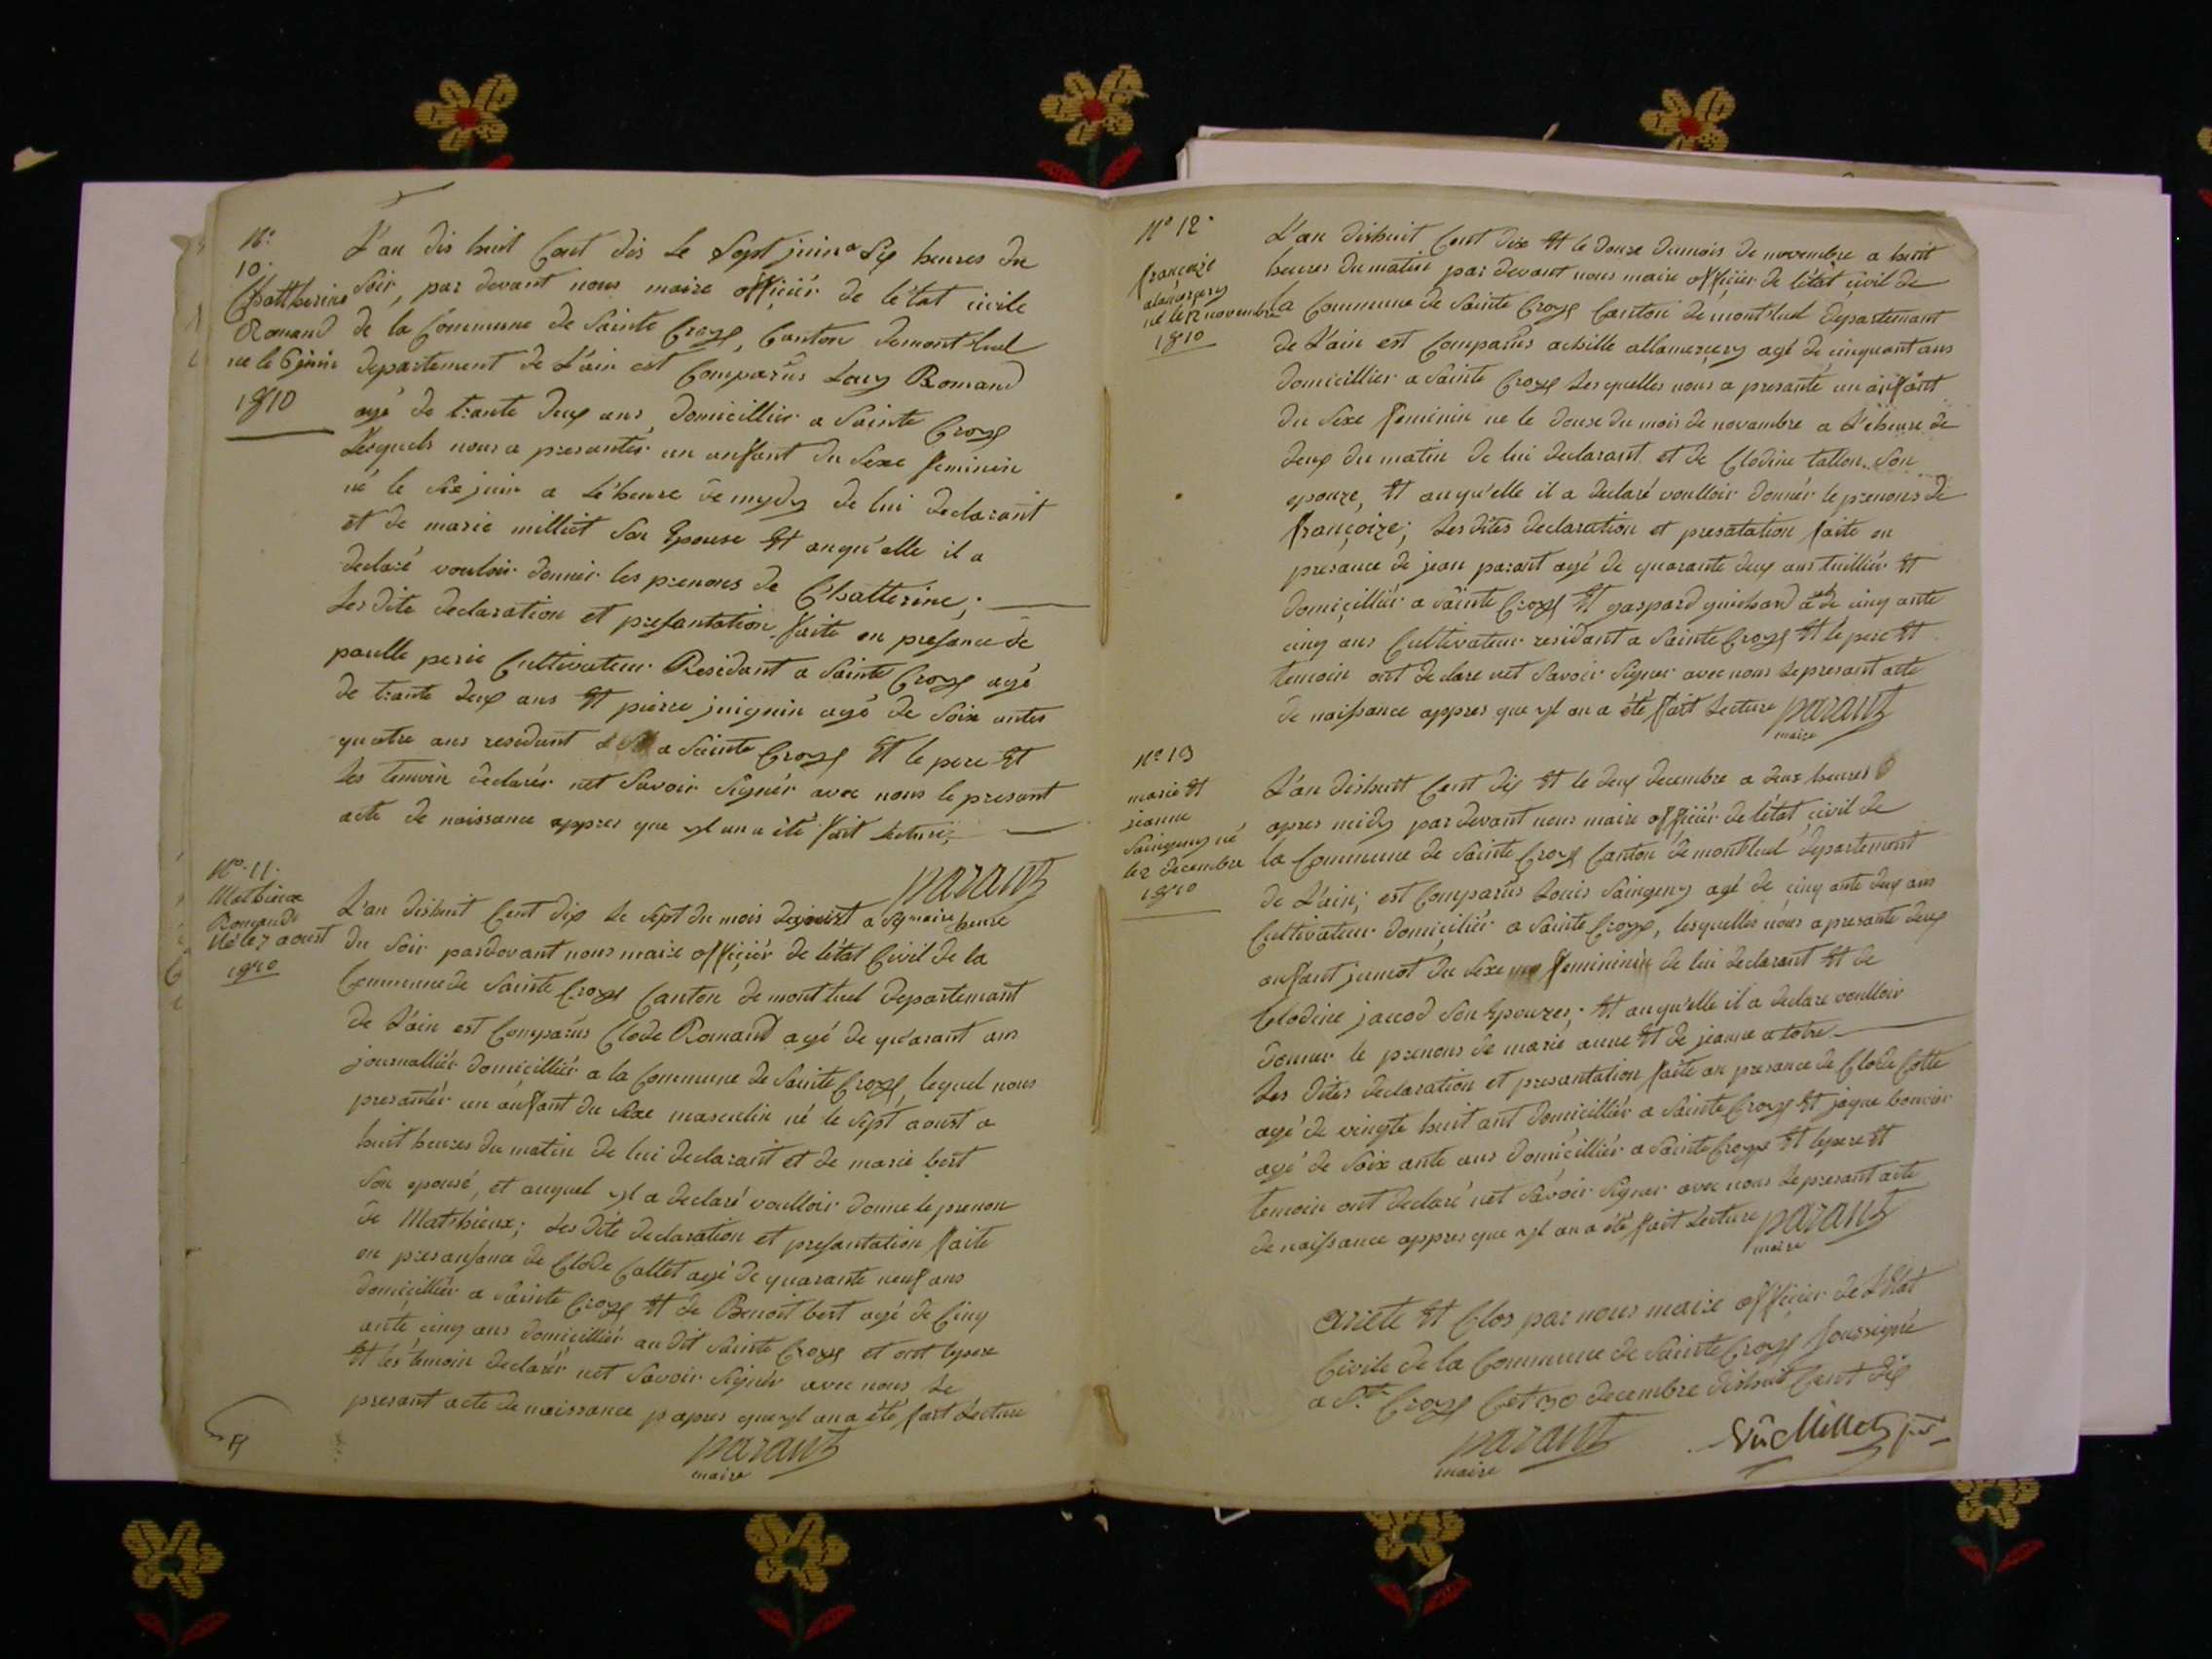 N°
10.
Chattherine
Romand
né le 6 juin
1810
L'an dis huit Cent dis Le Sept juin a Six heures du
Soir, par devant nous maire officiér de l'état civile
de la Commune de Sainte Croyx, Canton demont'luel
departement de L'ain est Comparûs Romand
agé de trante deux ans, domicillier a Sainte Croyx
Lesquels nous a presantér un anfant du Sexe feminin
né le Six juin a Lé'heure de mydy de lui declarant
et de marie milliet Son Epouse Et auqu'elle il a
declaré vouloir donnér les prenons de Chatterine;
Lesdite declaration et presantation faite en presance de
paulle perie Cultivateur Residant a Sainte Croyx agé
de trante deux ans Et pierre juignin agé de Soix antes
quatre ans residant a Sainte Croyx Et le pere Et
les temoin declarér net Savoir Signér avec nous le presant
acte de naissance appres que yl an a été fait Lecture;
parant
maire
N° 11.
Mathieux
Romand
Né le 7 aoust
1810
L'an dishuit Cent dix Le Sept du mois daoust a Sy heure
du Soir pardevant nous maire officiér de létat Civil de la
Commune de Sainte Croyx Canton de mont luel departemant
de L'ain est Comparûs Clode Romand agé de qu'arant ans
journalliér domicilliér a la Commune de Sainte Croyx, lequel nous
presantér un anfant du Sexe masculin né le Sept aoust a
huit heures du matin de lui declarant et de marie bert
Son epousé, et auquel yl a declaré voulloir donne le prenon
de Mathieux; Les dite declaration et presantation faite
en presansance de Clode Collet agé de quarante neuf ans
domicillier a Sainte Croyx Et de Benoit bert agé de Cinq
ante cinq ans domicillier au dit Sainte Croyx et ont lepere
Et les temoin declarér net Savoir Signér avec nous Le
presant acte de naissance papres que yl an a été fait Lecture
parant
maire
N° 12.
françoize
alamersery
né le 12 novembre
1810
L'an dishuit Cent dix Et le douze dumois de novembre a huit
heures du matin par devant nous maire officier de l'état civil de
La Commune de Sainte Croyx Canton de mont'luel departemant
de L'ain est Comparûs achille allamersery agé de cinquant ans
domicillier a Sainte Croyx Lesquelles nous a presanté un anfant
du Sexe feminin ne le douse du mois de novambre a L'éheure de
deux du matin de lui declarant et de Clodine tallon Son
epouze, Et auqu'elle il a declaré voulloir donnér le prenons de
françoize; Lesdites declaration et presatation faite en
presance de jean parant agé de quarante deux ans tuilliér Et
domicilliér a Sainte Croyx Et gaspard guichard agé de cinq ante
cinq ans Cultivateur residant a Sainte Croyx Et le pere Et
temoin ont declare net Savoir Signer avec nous Le presant acte
de naissance appres que yl an a été fait Lecture parant
maire
N° 13
marie Et
jeanne
Saingeny né
le 2 decembre
1810
L'an dishuit Cent dix Et le deux decembre a deux heures
apres midy par devant nous maire officiér de l'état civil de
la Commune de Sainte Croyx Canton de montluel departement
de L'ain; est Comparûs Louis Saingeny agé de cinq ante deux ans
Cultivateur domiciliér a Sainte Croyx, lesquelles nous a presante deux
anfant jumot du Sexe femininin de lui declarant Et de
Clodine jaccod Son Epouzes; Et auqu'elle il a declare voulloir
donner le prenons de marie anne Et de jeanne a lotre
Les dites declaration et presantation faite an presance de Clode Cotte
agé de vingte huit ant domicilliér a Sainte Croyx Et jaque bouvier
agé de Soix ante ans domicilliér a Sainte Croyx Et lepere Et
temoin ont declaré net Savoir Signer avec nous Le presant acte
de naissance appres que yl an a été fait Lecture parant
maire
Arreté Et Clos par nous maire officier de L'Etat
Civile de la Commune de Sainte Croyx Soussigné
a Ste Croyx Cet 30 decembre dishuit Cent dix
parant
maire
Vu Millet